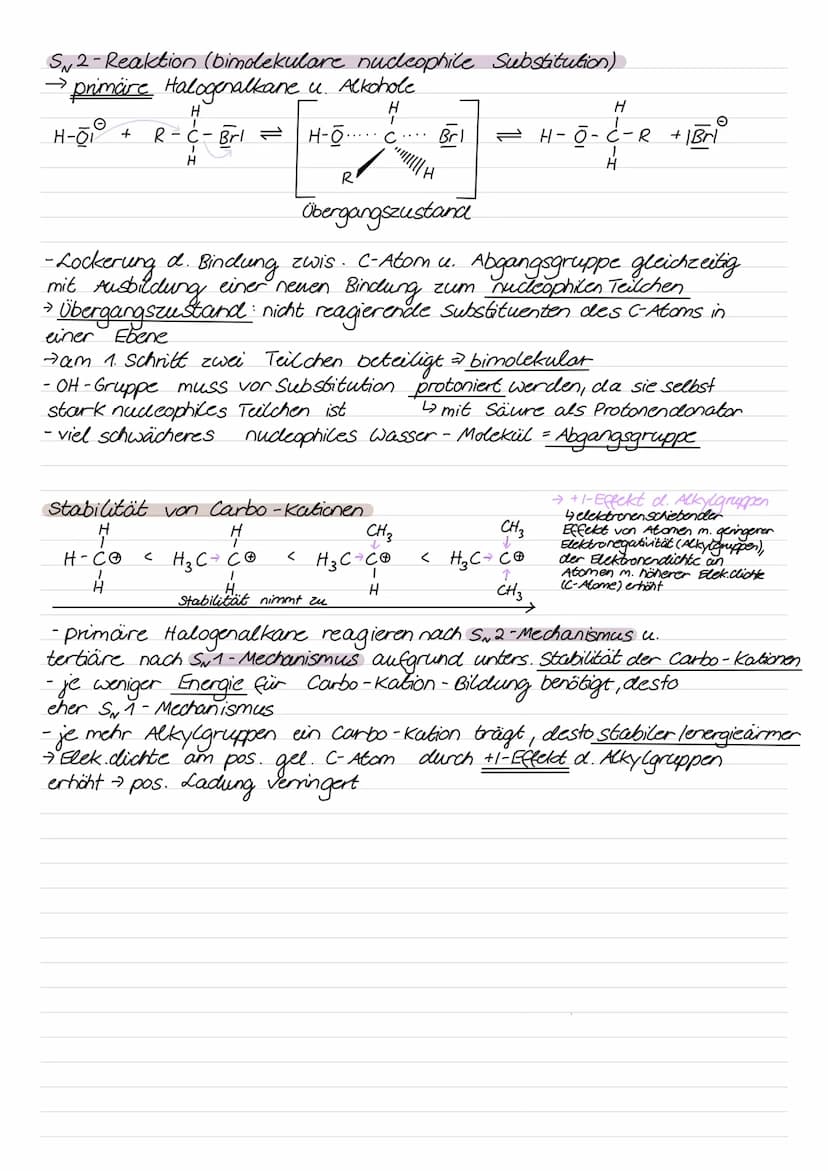 SN2-Reaktion (bimolekulare nucleophile Substitution)
→ primäre Halogenalkane u. Alkohole
H H H
H-O̅|⊖ + R-C-B̅r| ⇌ [ H-O̅ ····· C ···· B̅r| ] ⇌ H-O̅-C-R + |B̅r|⊖
H R H H
Übergangszustand
-Lockerung d. Bindung zwis. C-Atom u. Abgangsgruppe gleichzeitig
mit Ausbildung einer neuen Bindung zum nucleophilen Teilchen
→ Übergangszustand: nicht reagierende Substituenten des C-Atoms in
einer Ebene
→am 1. Schritt zwei Teilchen beteiligt ⇒ bimolekular
- OH-Gruppe muss vor Substitution protoniert werden, da sie selbst
stark nucleophiles Teilchen ist ↳ mit Säure als Protonendonator
- viel schwächeres nucleophiles Wasser-Molekül = Abgangsgruppe
Stabilität von Carbo-Kationen
→ +I-Effekt d. Alkylgruppen
↳ elektronenschiebender
Effekt von Atomen m. geringerer
Elektronegativität (Alkylgruppen),
der Elektronendichte an
Atomen m. höherer Elek.dichte
(C-Atome) erhöht
H H CH3 CH3
H-C⊕ < H3C→C⊕ < H3C→C⊕ < H3C→C⊕
H H H CH3
Stabilität nimmt zu
- primäre Halogenalkane reagieren nach SN2-Mechanismus u.
tertiäre nach SN1-Mechanismus aufgrund unters. Stabilität der Carbo-Kationen
- je weniger Energie für Carbo-Kation-Bildung benötigt, desto
eher SN1-Mechanismus
- je mehr Alkylgruppen ein Carbo-Kation trägt, desto stabiler/energieärmer
→ Elek.dichte am pos. gel. C-Atom durch +I-Effekt d. Alkylgruppen
erhöht → pos. Ladung verringert